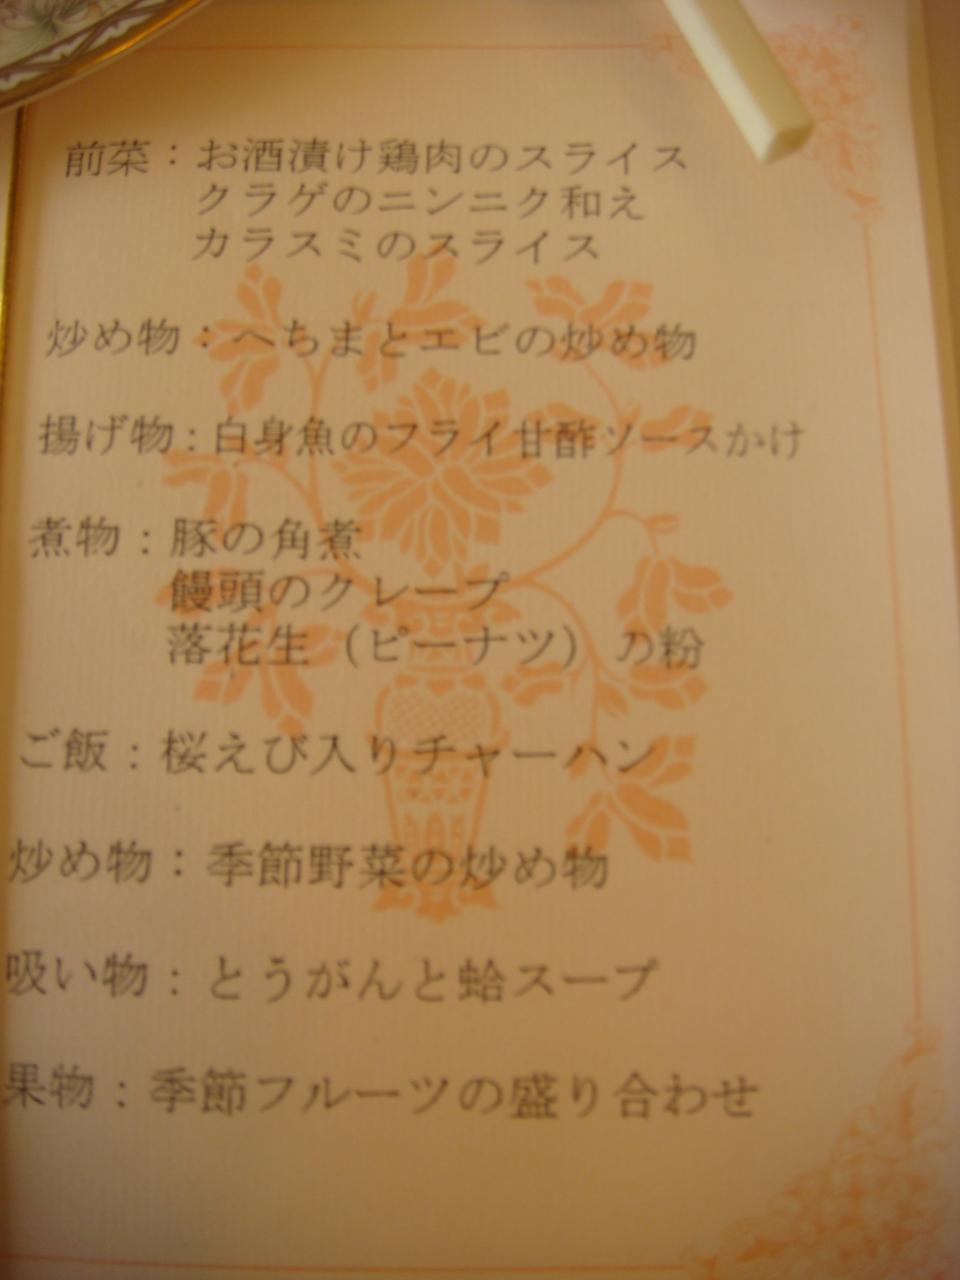 前菜：お酒漬け鶏肉のスライス
クラゲのニンニク和え
カラスミのスライス
炒め物：へちまとエビの炒め物
揚げ物：白身魚のフライ甘酢ソースかけ
煮物：豚の角煮
饅頭のクレープ
落花生（ピーナツ）の粉
ご飯：桜えび入りチャーハン
炒め物：季節野菜の炒め物
吸い物：とうがんと蛤スープ
果物：季節フルーツの盛り合わせ